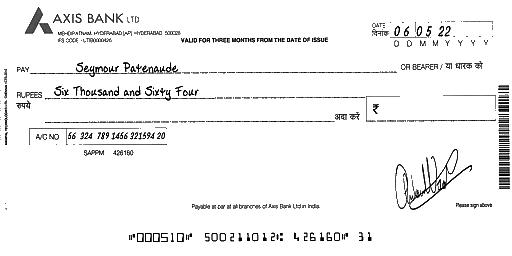 AXIS BANK LTD
MEHDIPATNAM, HYDERABAD (AP) HYDERABAD 500028
IFS CODE - UTIB0000426
VALID FOR THREE MONTHS FROM THE DATE OF ISSUE
DATE
दिनांक 06 05 22
D D M M Y Y Y Y
PAY Seymour Patenaude OR BEARER / या धारक को
RUPEES Six Thousand and Sixty Four
रुपये अदा करें ₹
A/C NO 56 324 789 1456 321594 20
SAPPM 426160
Payable at par at all branches of Axis Bank Ltd in India.
Please sign above
⑈000510⑈ 500211012⑆ 426160⑈ 31